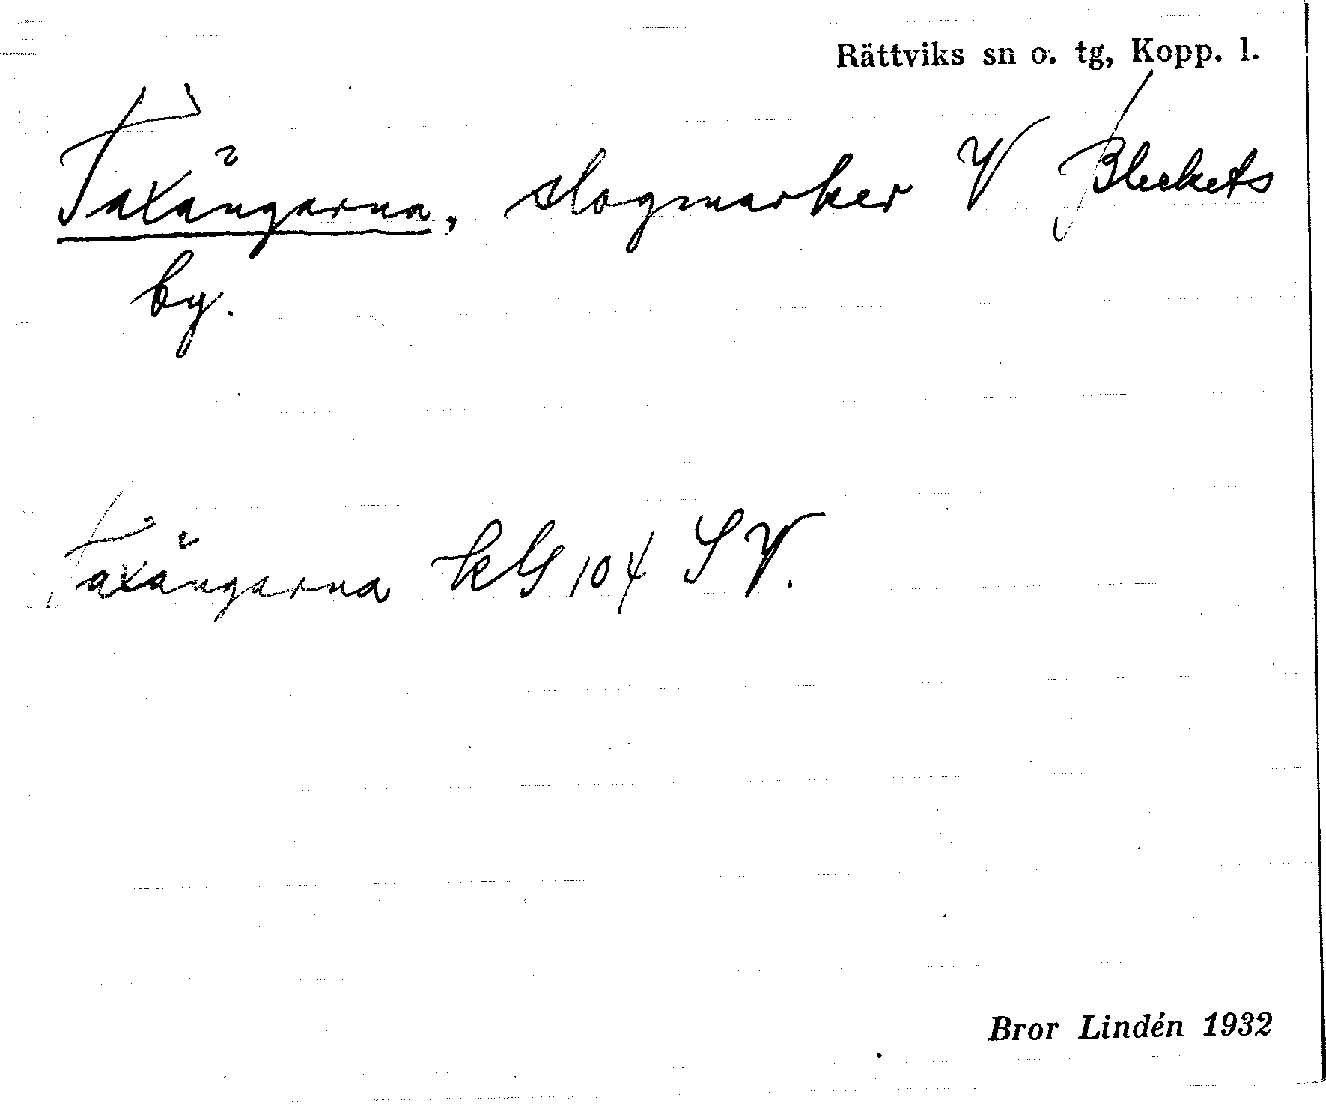 Rättviks sn o. tg, Kopp. l.
Taxängarna, slogmarker V Bleckets
by.
Taxängarna kG 104 SV.
Bror Lindén 1932